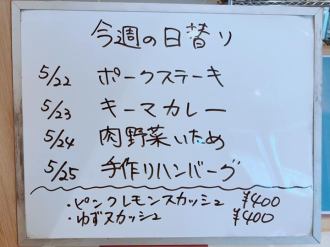 今週の日替り
5/22 ポークステーキ
5/23 キーマカレー
5/24 肉野菜いため
5/25 手作りハンバーグ
・ピンクレモンスカッシュ ¥400
・ゆずスカッシュ ¥400